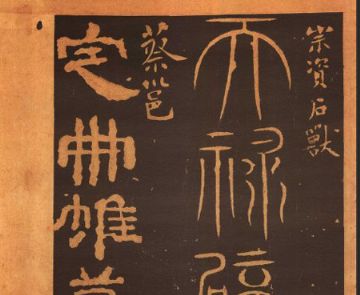 宗資石獸
天祿辟
蔡邕
定冊帷